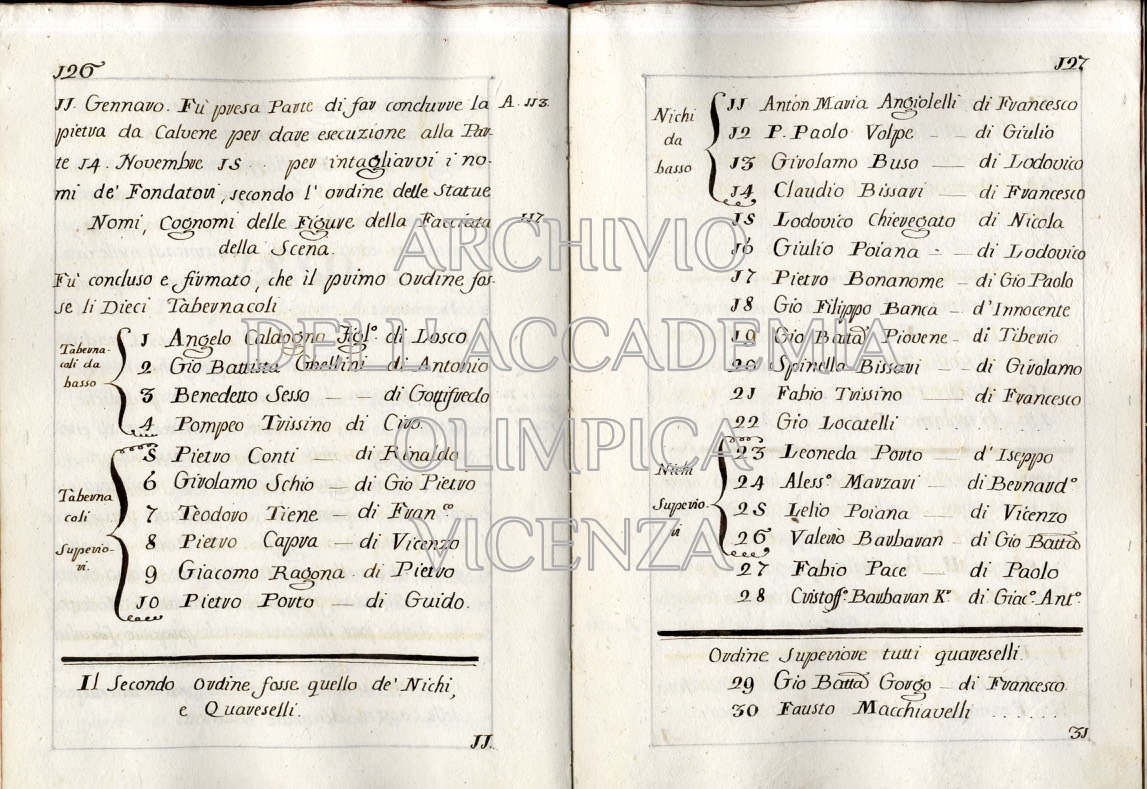 126
11 Gennaro. Fù presa Parte di far condurre la A. 113.
pietra da Calvene per dare esecuzione alla Par-
te 14. Novembre 15 per intagliarvi i no-
mi de' Fondatori, secondo l'ordine delle Statue
Nomi, Cognomi delle Figure della Facciata 117.
della Scena.
Fù concluso e firmato, che il primo Ordine fos-
se li Dieci Tabernacoli
Taberna-
coli da
basso
1 Angelo Caldogna Figl.º di Losco
2 Gio Battista Ghellini di Antonio
3 Benedetto Sesso — di Gottifredo
4 Pompeo Trissino di Ciro.
Taberna
coli
Superio-
ri.
5 Pietro Conti di Rinaldo
6 Girolamo Schio — di Gio Pietro
7 Teodoro Tiene — di Fran.co
8 Pietro Capra — di Vicenzo
9 Giacomo Ragona. di Pietro
10 Pietro Porto — di Guido.
Il Secondo Ordine fosse quello de' Nichi,
e Quareselli.
11.
127
Nichi
da
basso
11 Anton Maria Angiolelli di Francesco
12 P. Paolo Volpe — di Giulio
13 Girolamo Buso — di Lodovico
14 Claudio Bissari di Francesco
15 Lodovico Chieregato di Nicola
16 Giulio Poiana — di Lodovico
17 Pietro Bonanome — di Gio Paolo
18 Gio Filippo Banca d'Innocente
19 Gio Batta Piovene — di Tiberio
20 Spinella Bissari di Girolamo
21 Fabio Trissino di Francesco
22 Gio Locatelli
Nichi
Superio-
ri
23 Leoneda Porto — d'Iseppo
24 Aless.º Marzari di Bernard.º
25 Lelio Poiana — di Vicenzo
26 Valerio Barbaran — di Gio Batta
27 Fabio Pace — di Paolo
28 Cristoff.º Barbaran K.r di Giac.º Ant.º
Ordine Superiore tutti quareselli.
29 Gio Batta Gorgo — di Francesco.
30 Fausto Macchiavelli . . . . . .
31
ARCHIVIO
DELL'ACCADEMIA
OLIMPICA
VICENZA